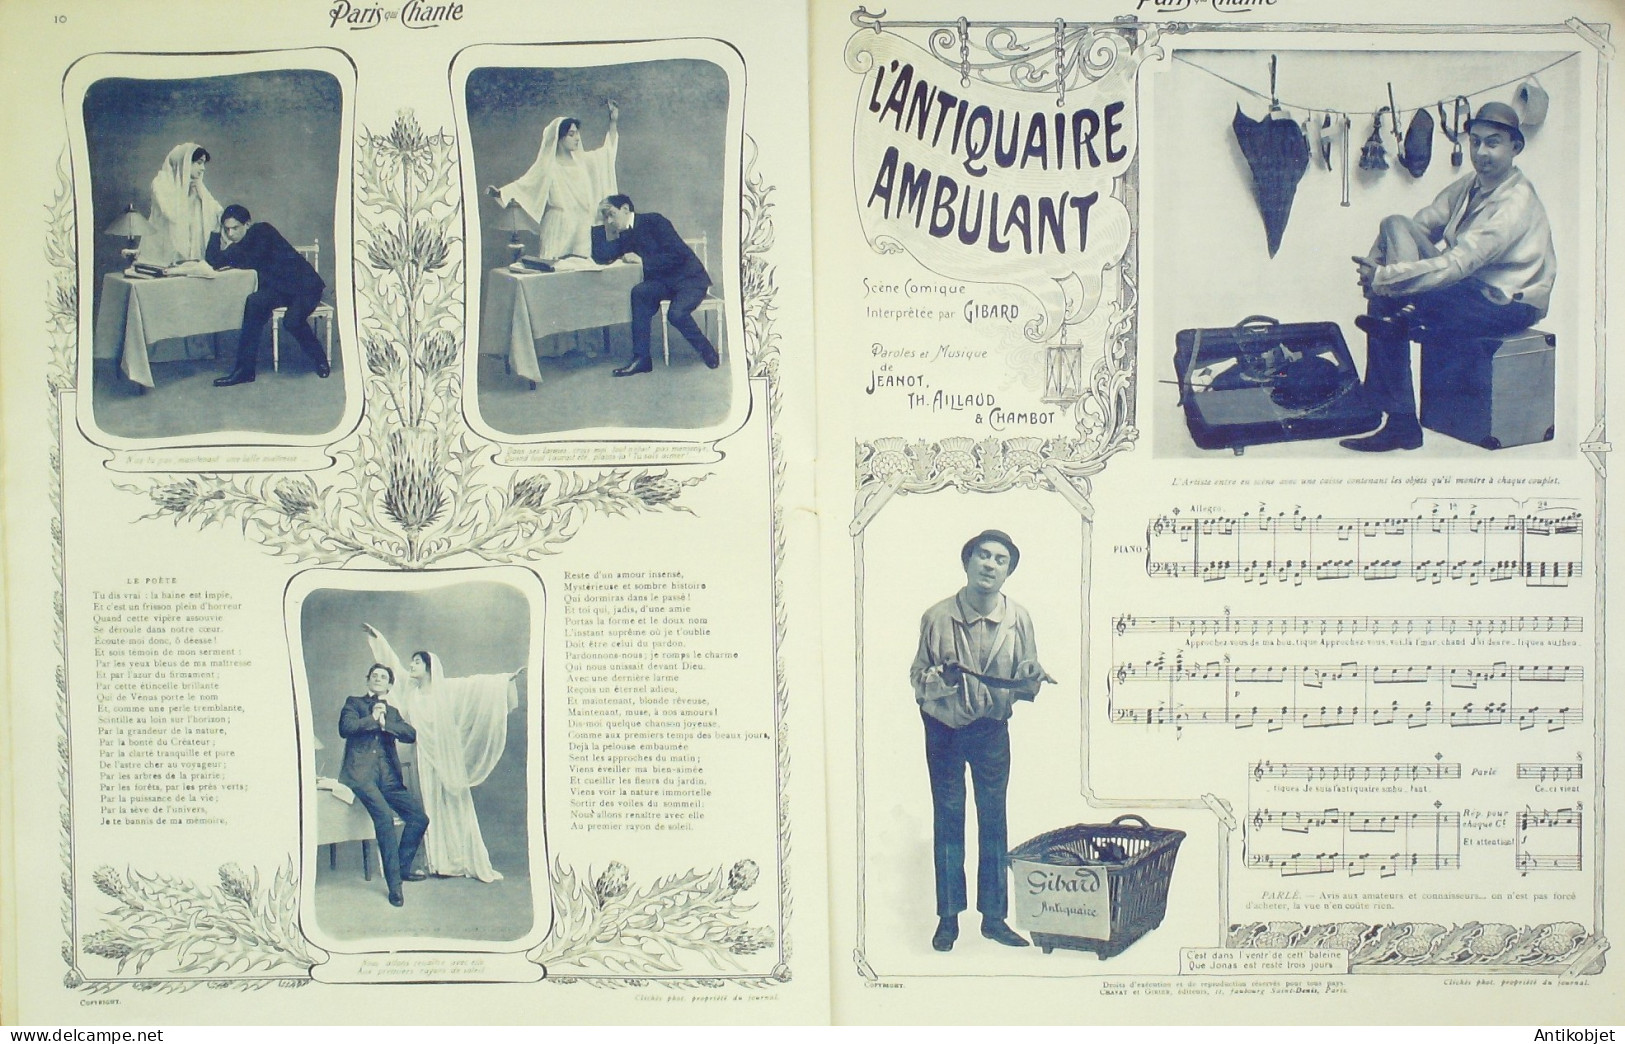 10
Paris qui Chante
N'as-tu pas maintenant une belle maîtresse...
LE POÈTE
Tu dis vrai : la haine est impie,
Et c'est un frisson plein d'horreur
Quand cette vipère assouvie
Se déroule dans notre cœur.
Écoute moi donc, ô déesse !
Et sois témoin de mon serment :
Par les yeux bleus de ma maîtresse
Et par l'azur du firmament ;
Par cette étincelle brillante
Qui de Vénus porte le nom
Et, comme une perle tremblante,
Scintille au loin sur l'horizon ;
Par la grandeur de la nature,
Par la bonté du Créateur ;
Par la clarté tranquille et pure
De l'astre cher au voyageur ;
Par les arbres de la prairie ;
Par les forêts, par les prés verts ;
Par la puissance de la vie ;
Par la sève de l'univers,
Je te bannis de ma mémoire,
Reste d'un amour insensé,
Mystérieuse et sombre histoire
Qui dormiras dans le passé !
Et toi qui, jadis, d'une amie
Portas la forme et le doux nom
L'instant suprême où je t'oublie
Doit être celui du pardon.
Pardonnons-nous ; je romps le charme
Qui nous unissait devant Dieu.
Avec une dernière larme
Reçois un éternel adieu,
Et maintenant, blonde rêveuse,
Maintenant, muse, à nos amours !
Dis-moi quelque chanson joyeuse,
Comme aux premiers temps des beaux jours,
Déjà la pelouse embaumée
Sent les approches du matin ;
Viens éveiller ma bien-aimée
Et cueillir les fleurs du jardin,
Viens voir la nature immortelle
Sortir des voiles du sommeil ;
Nous allons renaître avec elle
Au premier rayon de soleil.
Nous allons renaître avec elle
Aux premiers rayons de soleil
COPYRIGHT.
Clichés phot. propriété du journal.
Paris qui Chante
L'ANTIQUAIRE
AMBULANT
Scène Comique
Interprêtée par GIBARD
Paroles et Musique
de
JEANOT,
TH. AILLAUD
& CHAMBOT
L'Artiste entre en scène avec une caisse contenant les objets qu'il montre à chaque couplet.
Allegro.
1ª
2ª
PIANO
Approchez-vous de ma bou_tique Approchez-vous, voi_là l'mar_chand J'ai des re_liques authen_
p
_tiques Je suis l'antiquaire ambu_lant.
Parlé
Ce_ci vient
Rép. pour
chaque Ct.
Et attention!
f
PARLÉ. — Avis aux amateurs et connaisseurs... on n'est pas forcé
d'acheter, la vue n'en coûte rien.
Gibard
Antiquaire
C'est dans l'ventr' de cett' baleine
Que Jonas est resté trois jours
COPYRIGHT.
Droits d'exécution et de reproduction réservés pour tous pays.
Clichés phot. propriété du journal.
Antikobjet - delcampe.net